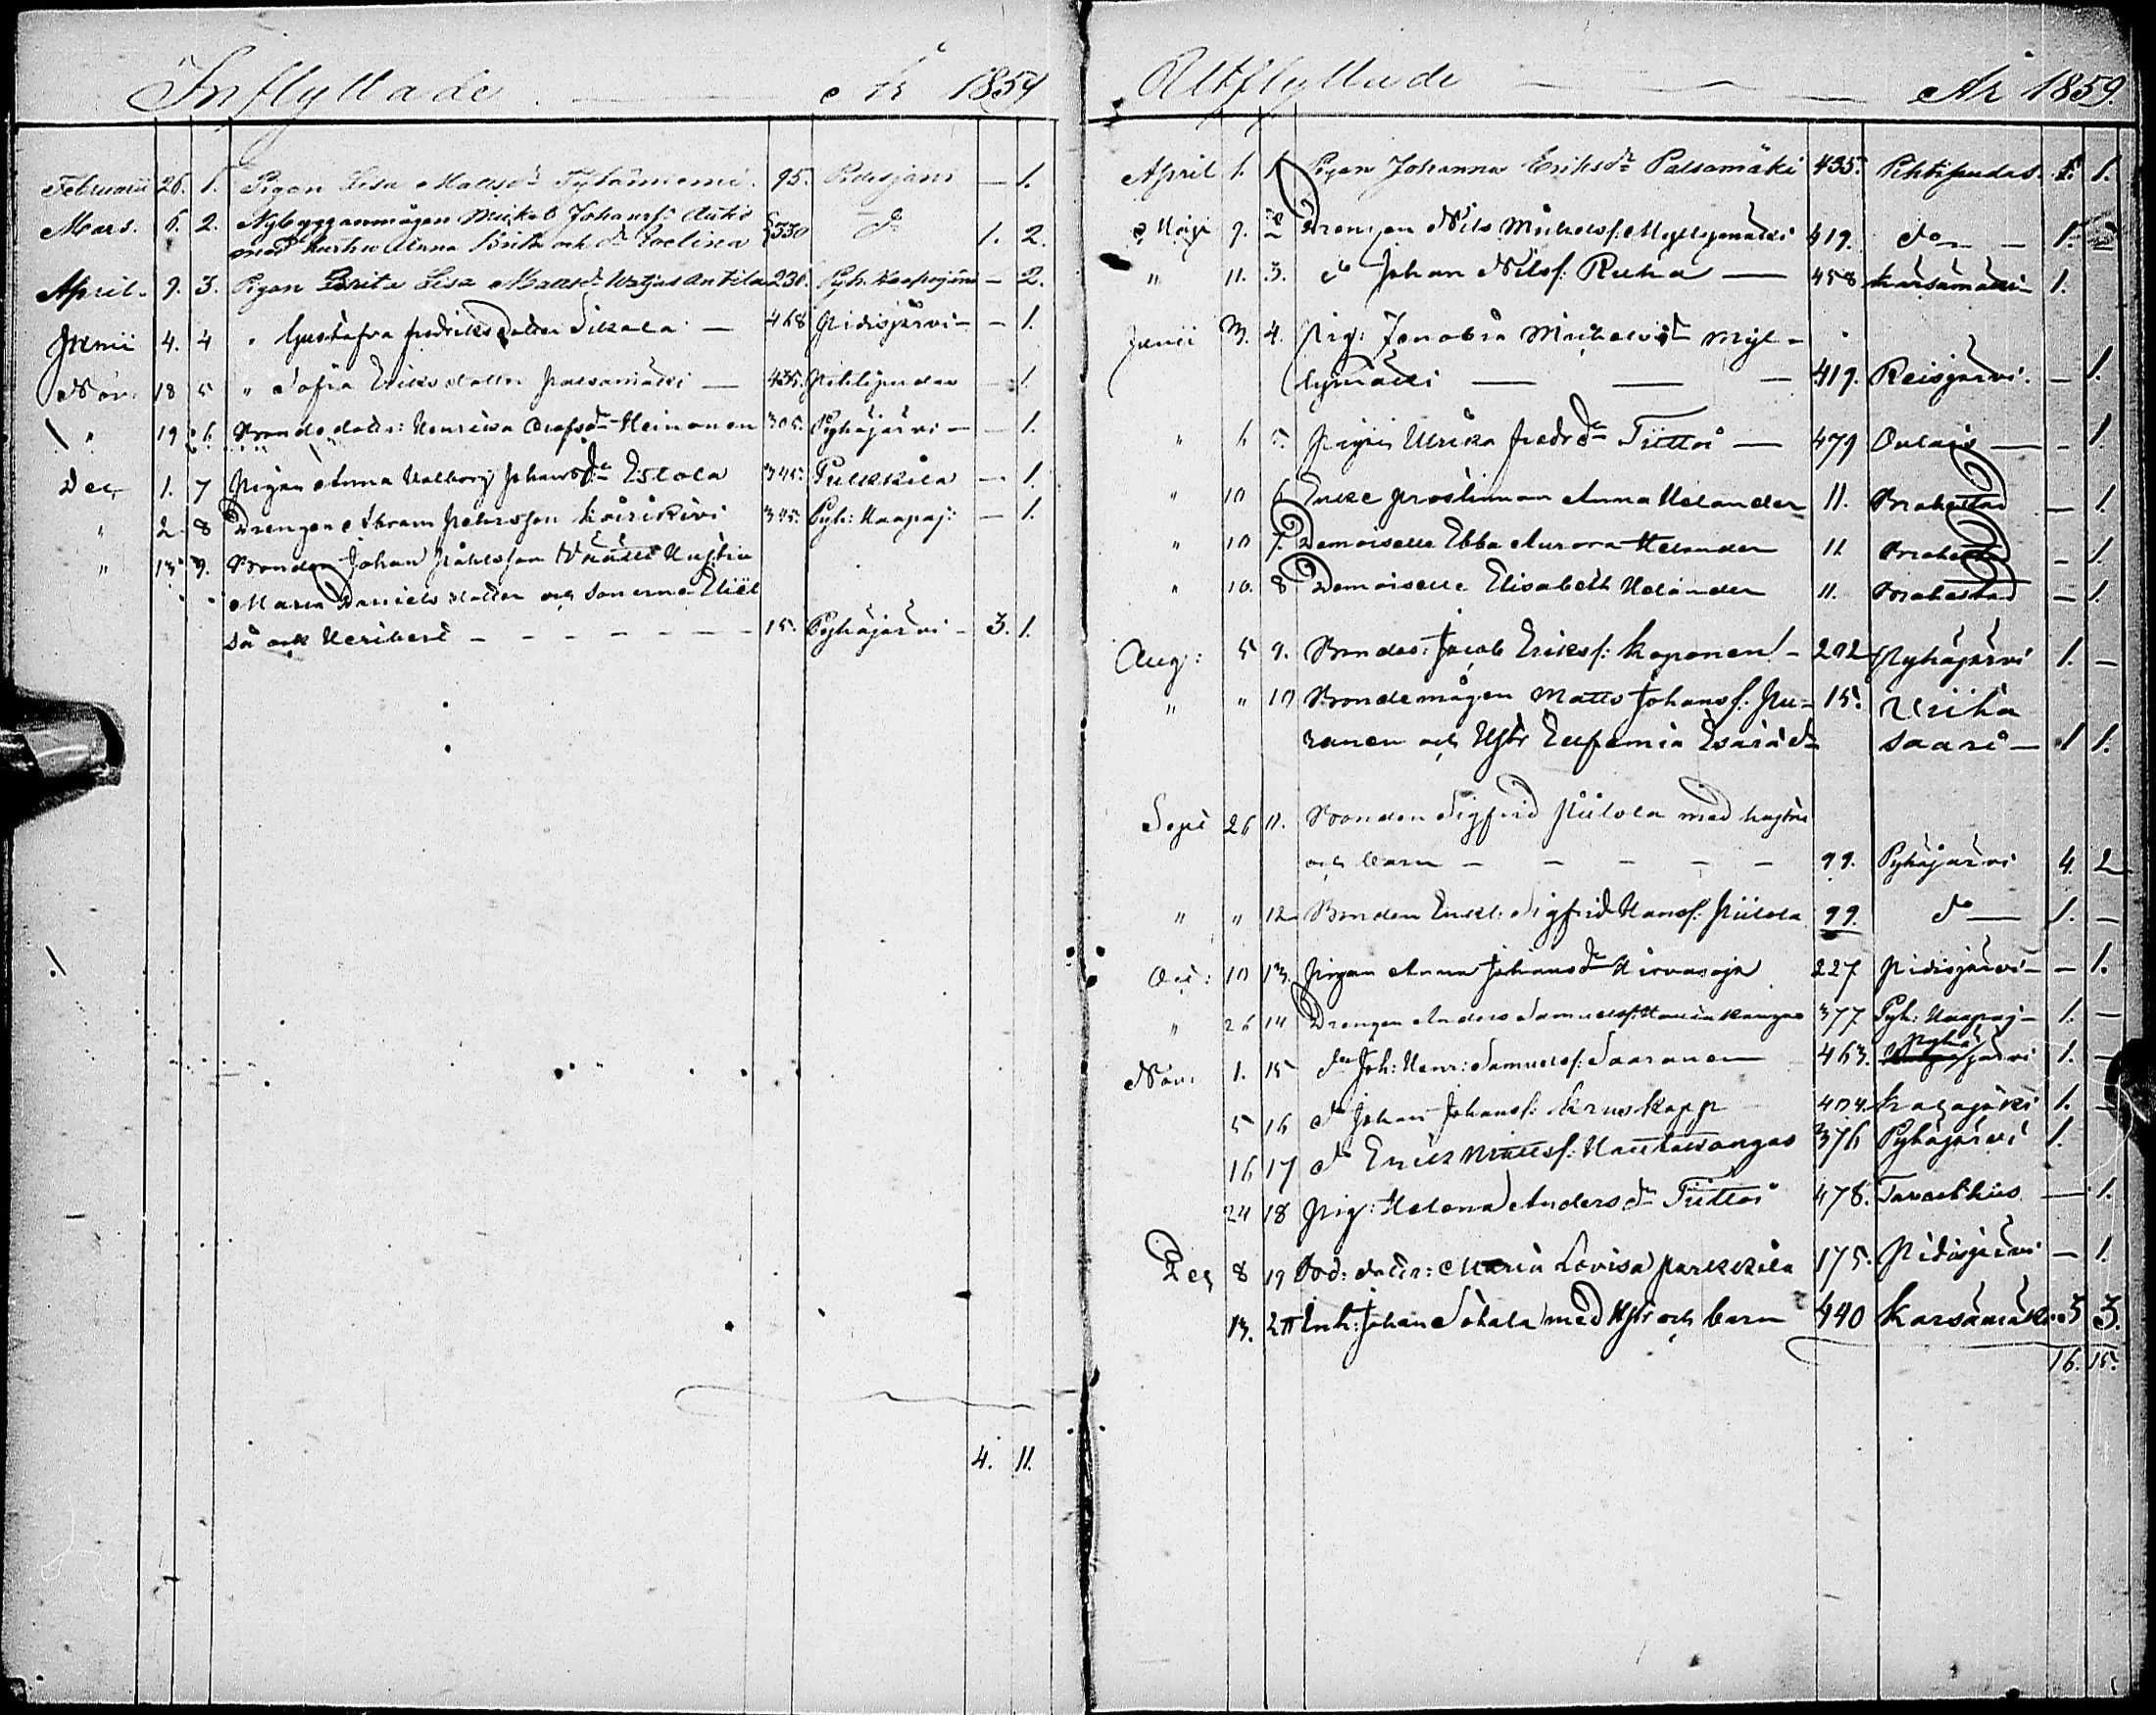 Inflyttade - År 1859
Februarii 26. 1. Pigan Lisa Mattsdr 95. Reisjärvi - 1.
Mars. 6. 2. Nybyggaremågen Mickel Johansf: Autio
med hustru Anna Brita och dr Evelina 330 do 1. 2.
April. 9. 3. Pigan Brita Lisa Mattsdr Antila 230. Pyh. Haapajärvi - 2.
Junii 4. 4 " Gustafva Fredriksdotter Sikala - 468 Pidisjärvi - - 1.
Nov. 18 5 " Sofia Eriksdotter Palsamäki - 435. Pihtipudas - 1.
" 19 6. Bondedottr: Henrica Olofsdr Heinonen 305. Pyhäjärvi - - 1.
Dec 1. 7 Pigan Anna Valborg Johansdr Eskola 345. Pulkkila - 1.
" 2 8 Drengen Abram Petersson Kairikivi 345. Pyh: Haapaj: - 1.
" 13 9. Bonden Johan Påhlsson Hustru
Maria Danielsdotter och sönerne Eliel
så och Heribert - - - - - - - 15. Pyhäjärvi - 3. 1.
4. 11.
Utflyttade - - - År 1859.
April 1. 1 Pigan Johanna Eriksdr Palsamäki 435. Pihtipudas. 1.
Maji 9. 2 Drengen Nils Michelsf. Myllymäki 419. do - - 1.
" 11. 3. do Johan Nilsf: Ruha - 458 Karsämäki - 1.
Junii 3. 4. Pig: Zenobia Michelsdr Myl-
lymäki - - - 419. Reisjärvi. - 1.
" 6 5. Pigan Ulrika Fredrdr Tiitto - 479 Oulais - - 1.
" 10 6 Enke prostinnan Anna Helander 11. Brahestad - 1.
" 10 7. Demoiselle Ebba Aurora Helander 11 Brahestad - 1.
" 10. 8 Demoiselle Elisabeth Helander 11. Brahestad - 1.
Aug: 5 9. Bondes: Jacob Eriksf: Koponen - 202 Pyhäjärvi 1. -
" " 10 Bondemågen Matts Johansf. Pu- 15. Uriha
ranen och Hstr Eufemia Esaiädr saari - 1 1.
Sept 26 11. Bonden Sigfrid Piilola med hustru
och barn - - - - - 99. Pyhäjärvi 4. 2
" " 12 Bonden Enkl: Sigfrid Hansf. Piilola 99. do - 1. -
Oct: 10 13. Pigan Anna Johansdr Hirvasoja 227 Pidisjärvi - - 1.
" 26 14 Drengen Anders Samuelsf: Hautakangas 377 Pyh: Haapaj- 1. -
Nov: 1. 15 do Joh: Henr: Samuelsf: Saaranen 463. Pyhäjärvi 1. -
5 16 do Johan Johansf: Kruskopp 404. Kalajoki 1. -
16 17 do Erik Mattsf: Hautakangas 376 Pyhäjärvi 1.
24 18 Pig: Helena Andersdr Tiitto 478. Tavasthus - 1.
Dec 8 19 Bod: dottr: Maria Lovisa Parkkila 175. Pidisjärvi - 1.
13. 20 Enh: Johan Sohala med Hstr och barn 440 Karsämäki 3 3.
16. 15.